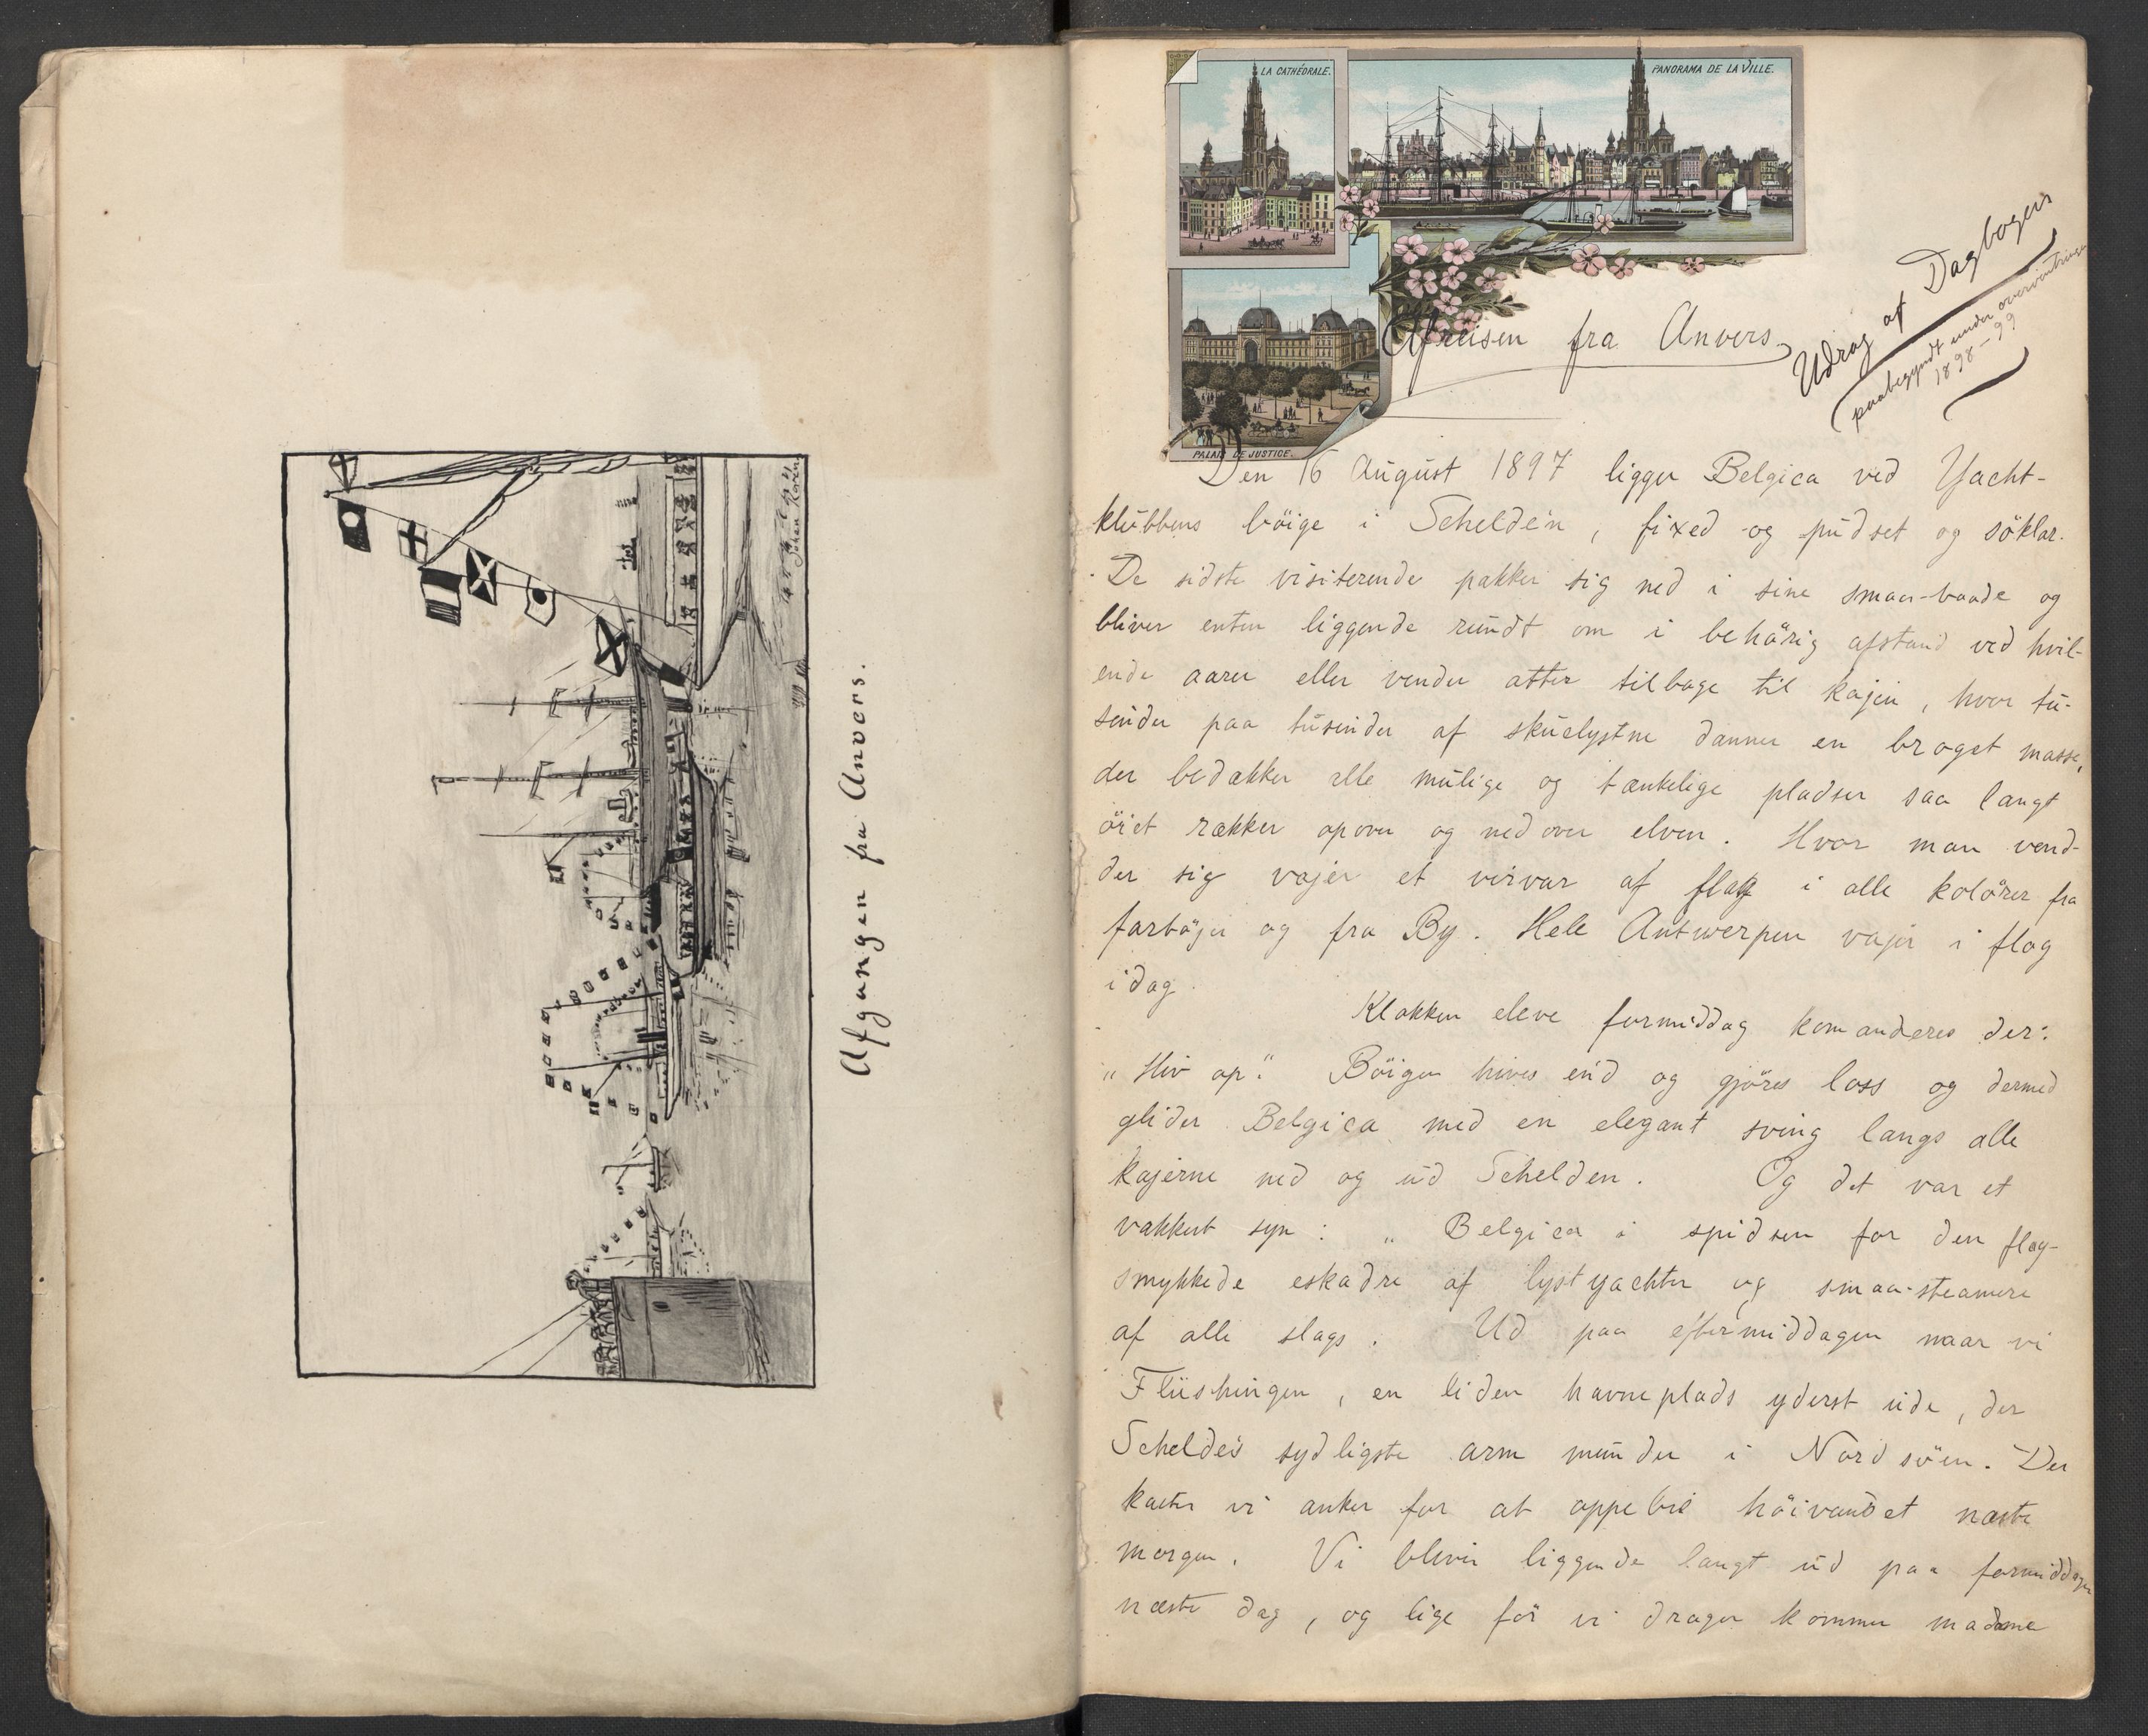 Johan Koren
Afgangen fra Anvers.
LA CATHÉDRALE.
PANORAMA DE LA VILLE.
PALAIS DE JUSTICE.
Udrag af Dagbogen
paabegyndt under overvintringen
1898-99
Afreisen fra Anvers.
Den 16 August 1897 ligger Belgica ved Yacht-
klubbens böige i Schelden, fixed og pudset og söklar.
De sidste visiterende pakker sig ned i sine smaa-baade og
bliver enten liggende rundt om i behörig afstand ved hvil-
ende aarer eller vender atter tilbage til kajen, hvor tu-
sinder paa tusinder af skuelystne danner en broget masse,
der bedækker alle mulige og tænkelige pladser saa langt
öiet rækker opover og nedover elven. Hvor man vend-
der sig vajer et virvar af flag i alle kolörer fra
fartöjer og fra By. Hele Antwerpen vajer i flag
idag.
Klokken eleve formiddag komanderes der:
"Hiv op". Böigen hives ind og gjöres loss og dermed
glider Belgica med en elegant sving langs alle
kajerne ned og ud Schelden. Og det var et
vakkert syn: "Belgica i spidsen for den flag-
smykkede eskadre af lystyachter og smaa-steamere
af alle slags. Ud paa eftermiddagen naar vi
Flüshingen, en liden havneplads yderst ude, der
Scheldes sydligste arm munder i Nordsöen. Der
kaster vi anker for at oppebie höivandet næste
morgen. Vi bliver liggende langt ud paa formiddagen
næste dag, og lige för vi drager kommer madame